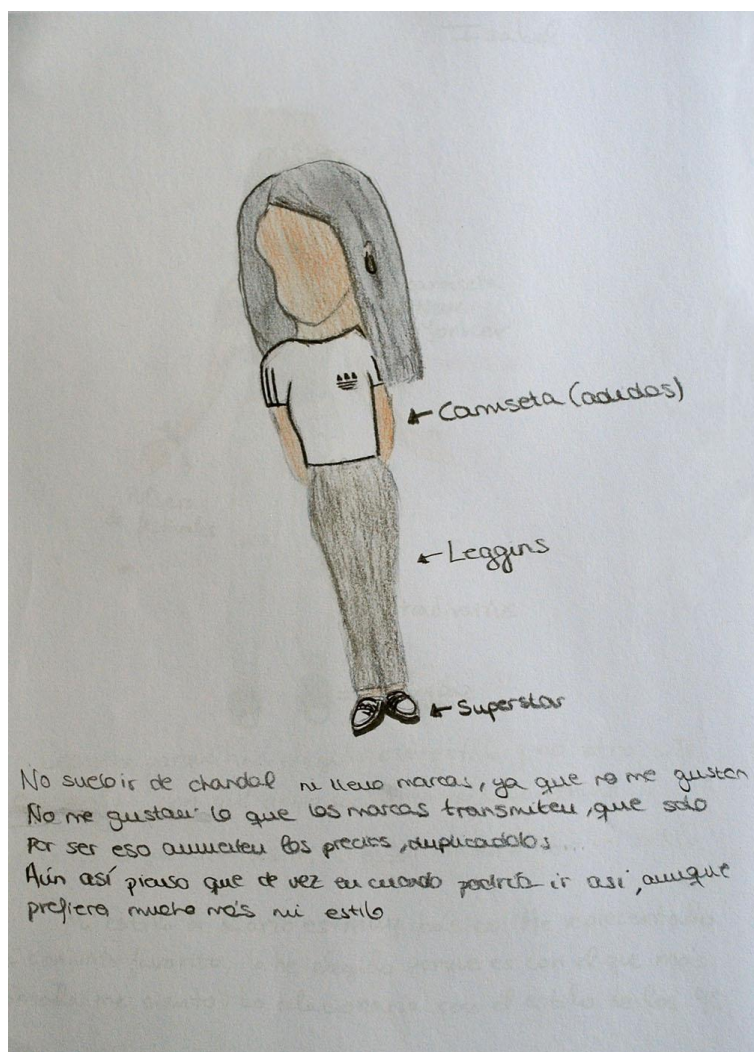 Camiseta (adidas)
Leggins
Superstar
No suelo ir de chandal ni llevo marcas, ya que no me gustan
No me gustan lo que las marcas transmiten, que solo
Por ser eso aumenten los precios, duplicadolos...
Aún así pienso que de vez en cuando podría ir así, aunque
prefiero mucho más mi estilo